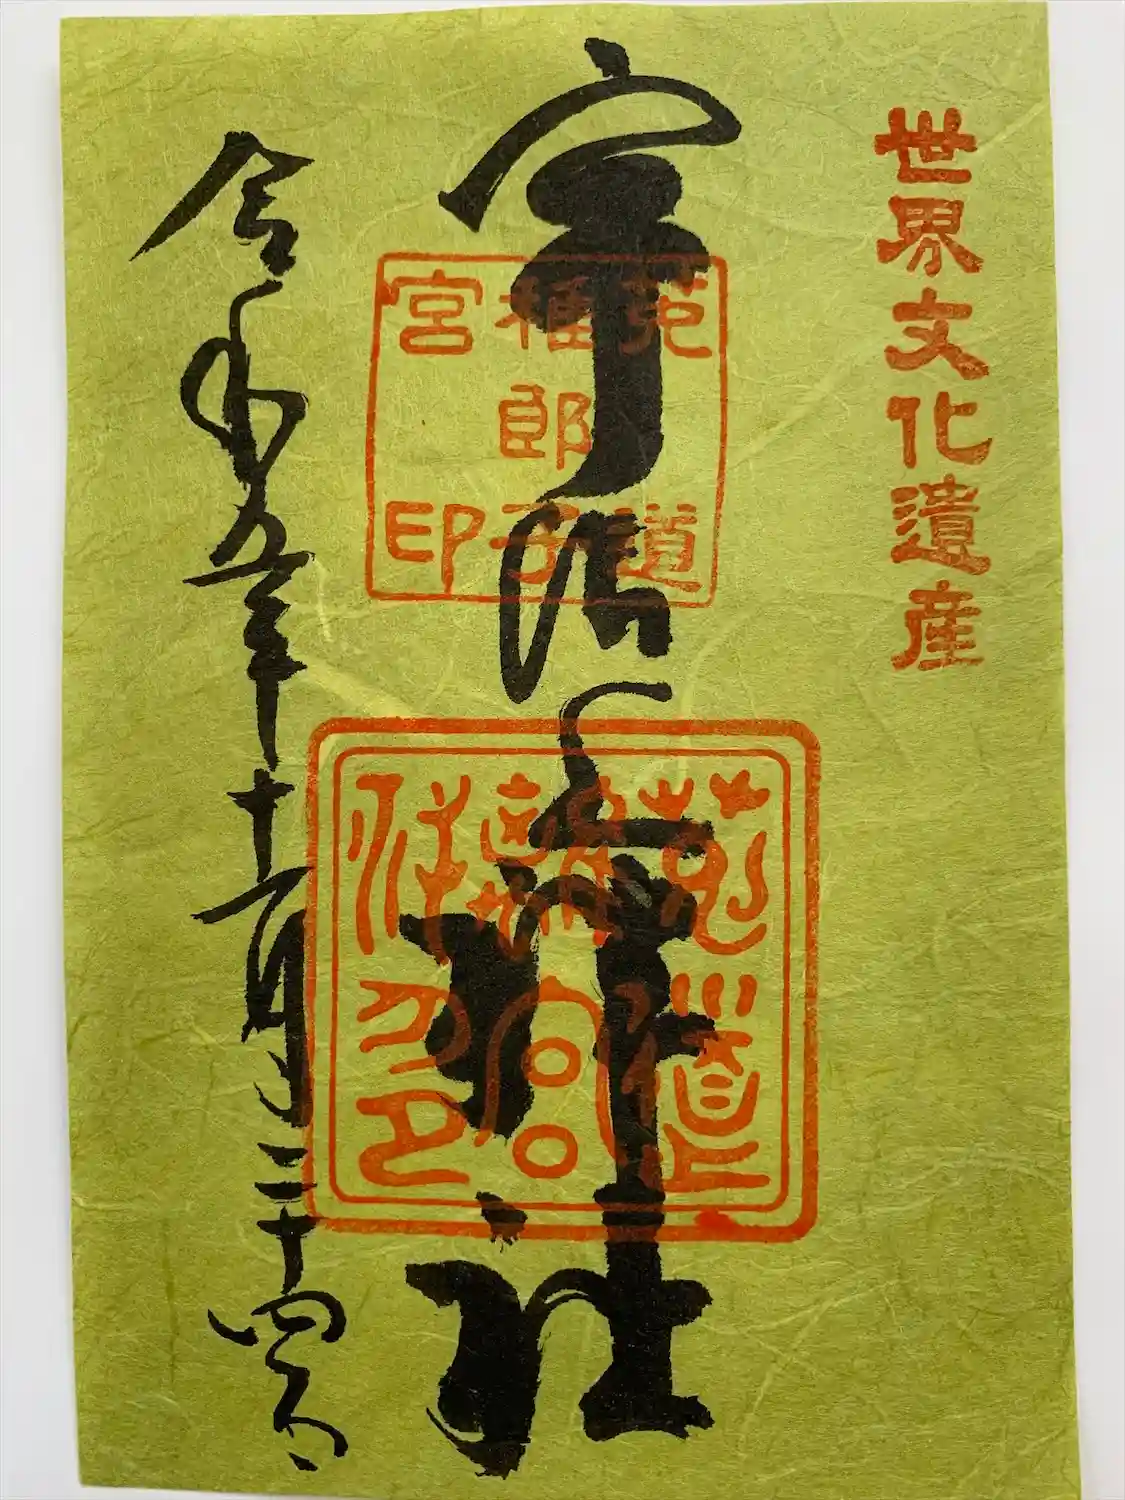 世界文化遺産
宇治上神社
菟道
稚郎子
宮印
菟道
離宮
令和五年十一月二十四日